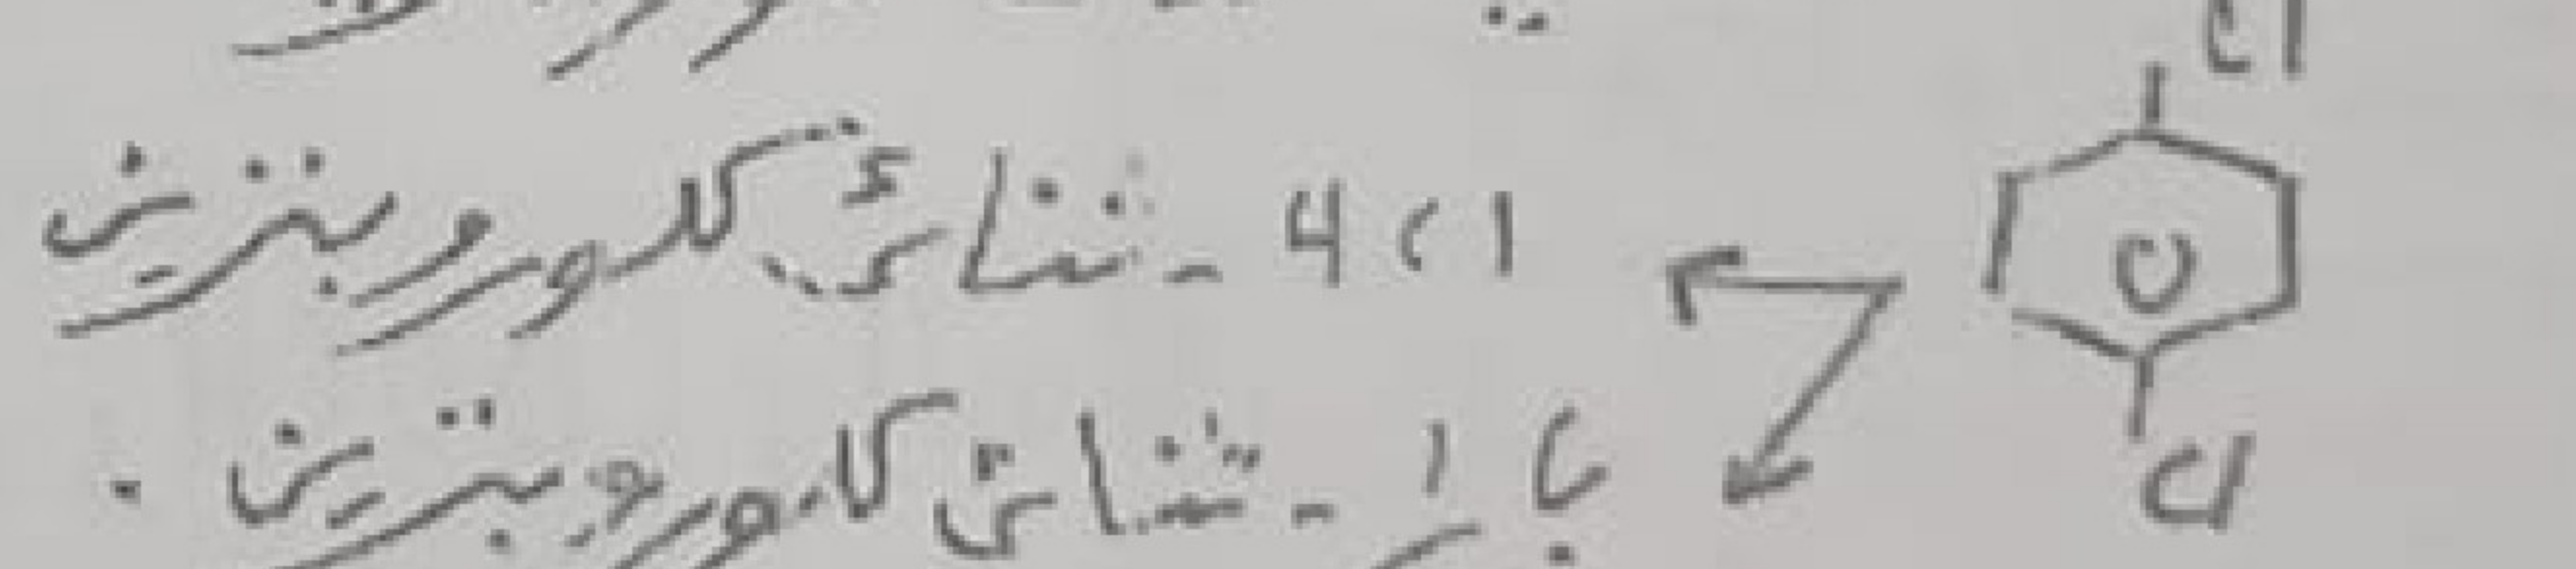 Cl
1،4 - ثنائي كلوروبنزين
بارا - ثنائي كلوروبنزين .
Cl